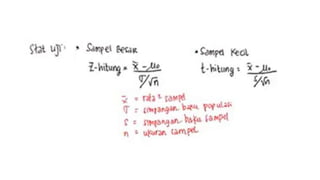 Stat Uji: • Sampel Besar • Sampel Kecil
Z-hitung = x̄ - μ₀ / σ/√n t-hitung = x̄ - μ₀ / s/√n
x̄ = rata² sampel
σ = simpangan baku populasi
s = simpangan baku sampel
n = ukuran sampel